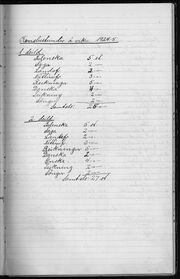 Kenslustundir á viku 1924-5.
1. deild.
Íslenska 5 st
Saga 2 —
Landaf. 2 —
Náttúrufr. 3 —
Reikningur 5 —
Danska 4 —
Teikning 2 —
Söngur 2 —
Samtals 25 st
2. deild.
Íslenska 5 st
Saga 2 —
Landaf. 2 —
Reikningur 5 —
Danska 2 —
Enska 4 —
Teikning 2 —
Söngur 2 —
Samtals 27 st